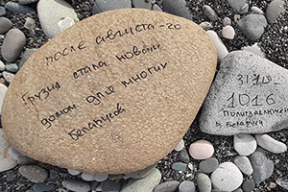 после августа-20
Грузия стала новым
домом для многих
беларусов
1016
политзаключенных
в Беларуси